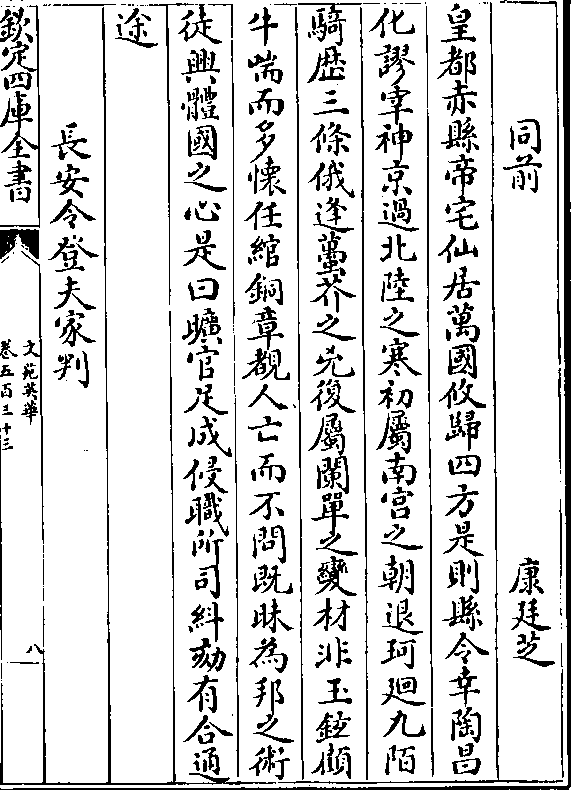 同前
康廷芝
皇都赤縣帝宅仙居萬國攸歸四方是則縣令幸陶昌
化謬宰神京過北陸之寒初屬南宫之朝退珂廻九陌
騎歴三條俄逢蠆芥之兇復屬闌單之㸑材非玉鉉顧
牛喘而多懷任綰銅章覩人亡而不問既昧為邦之術
徒興體國之心是曰曠官足成侵職所司糾劾有合通
途
長安令登夫家判
欽定四庫全書
文苑英華
卷五百三十三
八